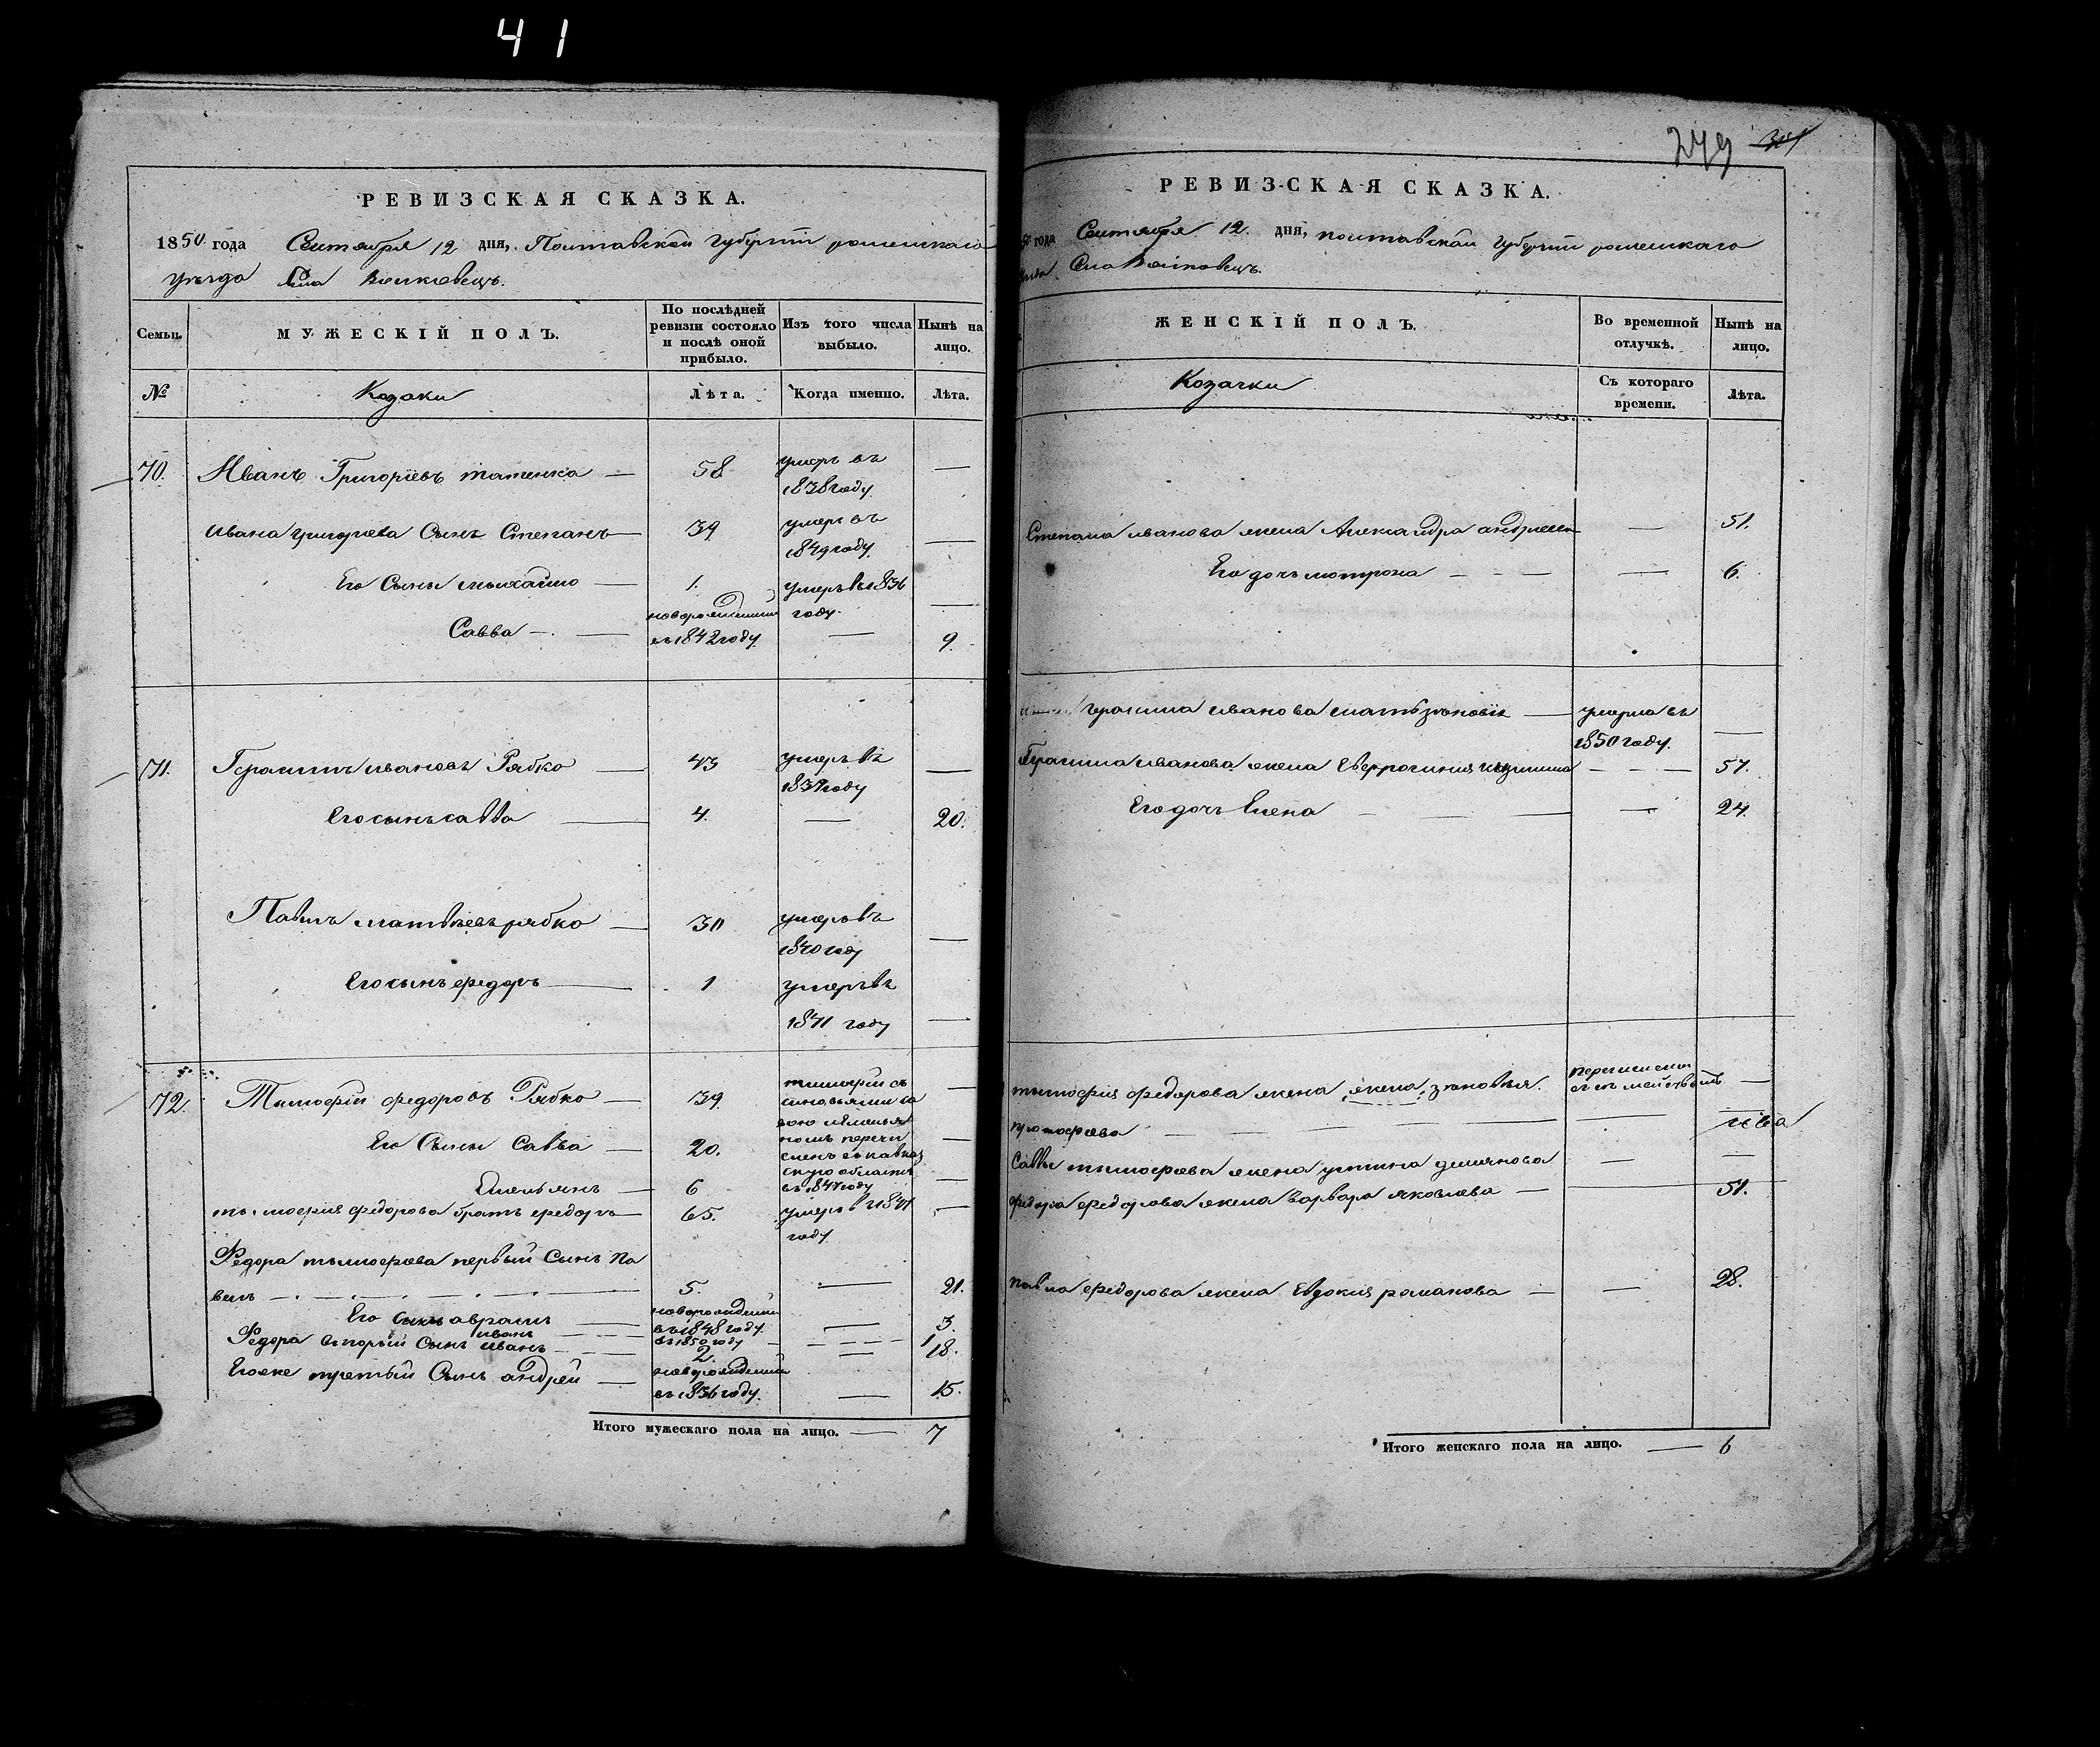 41
РЕВИЗСКАЯ СКАЗКА.
1850 года Сентября 12 дня, Полтавской губернии роменскаго
уезда Села Волковецъ.
Семьи.
МУЖЕСКІЙ ПОЛЪ.
По послѣдней ревизіи состояло и послѣ оной прибыло.
Изъ того числа выбыло.
Нынѣ на лицо.
№
Козаки
Лѣта.
Когда именно.
Лѣта.
70. Иванъ Григоріевъ татенко — 58 умеръ въ 1838 году —
Ивана григорева Сынъ Степанъ — 39 умеръ въ 1849 году —
Его Сыны михайло — 1. умеръ въ 1836 году —
Савва — новорожденный въ 1842 году — 9.
71. Герасимъ ивановъ Рябко — 43 умеръ въ году —
Его сынъ савва — 4. — 20.
Павелъ матвѣевъ рябко — 30 умеръ въ 1840 году —
Его сынъ федоръ — 1 умеръ въ 1841 году —
72. Тимофѣй федоровъ Рябко — 39. тимофѣй съ сыновьями са вою и Емелья номъ перечи сленъ въ кавказ скую область въ году —
Его Сыны Савва — 20. —
Емельянъ — 6 —
тимофея федорова братъ федоръ — 65. умеръ въ 1841 году —
Федора тимофеева первый Сынъ Па
велъ — 5. — 21.
Его Сынъ аврамъ — новорожденный въ 1848 году — 3.
иванъ — въ 1850 году — 1
Федора вторый Сынъ иванъ — 2. — 18.
Его же третый Сынъ андрей — новорожденный въ 1836 году — 15.
Итого мужескаго пола на лицо. — 7
279
РЕВИЗСКАЯ СКАЗКА.
50 года Сентября 12. дня, полтавской губерніи роменскаго
Села Волковецъ.
ЖЕНСКІЙ ПОЛЪ.
Во временной отлучкѣ.
Нынѣ на лицо.
Козачки
Съ котораго времени.
Лѣта.
Степана иванова жена Александра андреева — 51.
Его дочь мотрона — — 6.
герасима иванова мать зѣновія — умерла въ 1850 году. —
Герасима иванова жена Евфросинія — 57.
Его дочь Елена — — 24.
тимофея федорова жена жена зѣновія —
Саввы тимофеева жена устина демянова — —
федора федорова жена варвара яковлева — 51.
павла федорова жена Евдокия романова — — 28.
Итого женскаго пола на лицо. — 6